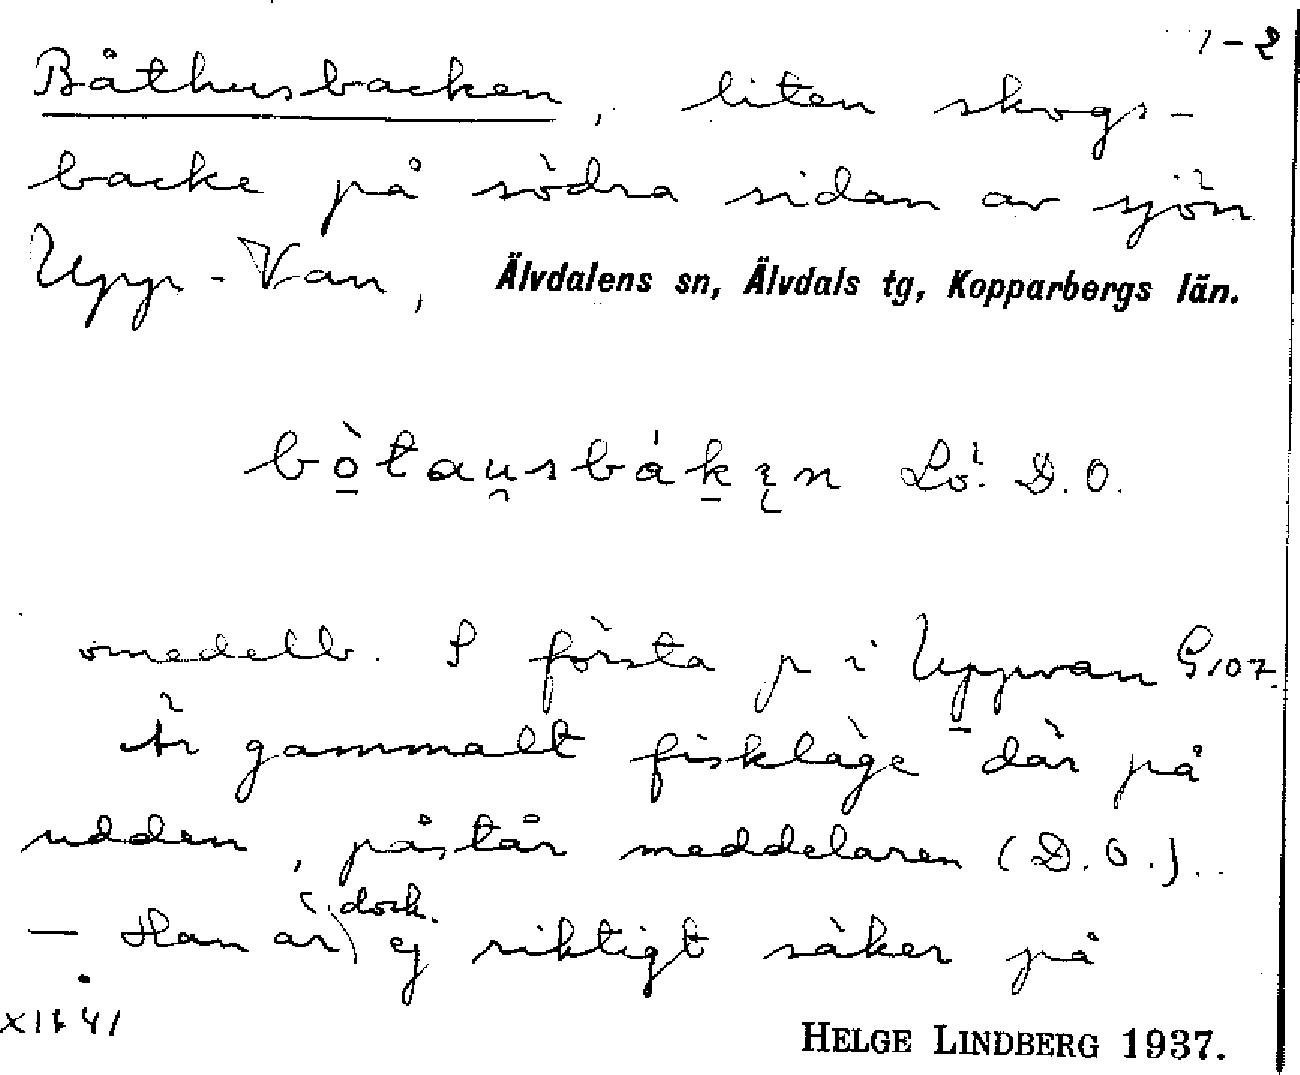 1-2
Båthusbacken, liten skogs-
backe på södra sidan av sjön
Upp-Van, Älvdalens sn, Älvdals tg, Kopparbergs län.
bò̠tau̯sbák̠įn Lö. D.O.
omedelb. S första p i Uppvan G107.
Är gammalt fiskläge där på
udden, påstår meddelaren (D.O.).
— Han är dock ej riktigt säker på
XII 41
HELGE LINDBERG 1937.